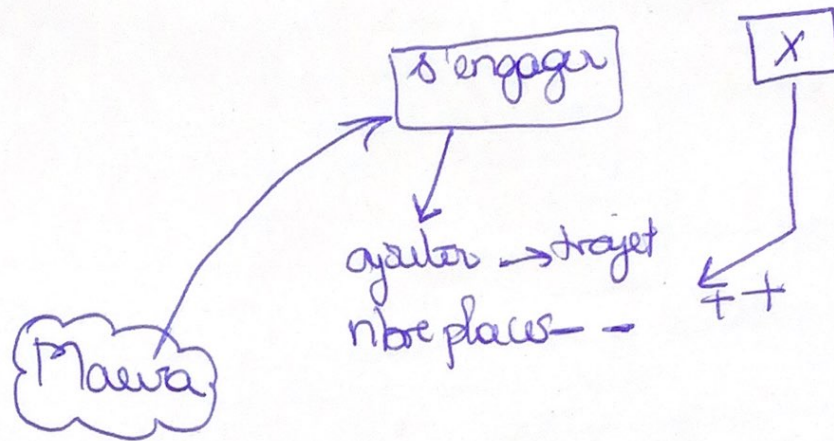 s'engager
X
ajouter → trajet
nbre places--
++
Maeva